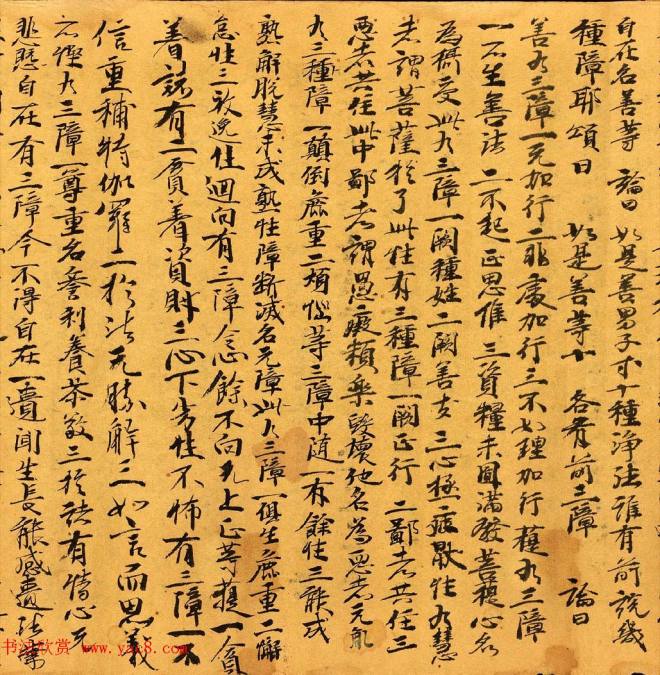 自在名善等 論曰如是善男子等十種淨法誰有前說幾
種障耶頌曰 如是善等十 各有前三障 論曰
善有三障一无加行二非處加行三不如理加行菩有三障
一不生善法二不起正思惟三資糧未圓滿發菩提心名
為攝受此有三障一闕種姓二闕善友三心極疲猒性有慧
者謂菩薩於了此性有三種障一闕正行二鄙者共住三
惡者共住此中鄙者謂愚癡類樂毀壞他名為惡者无亂
有三種障一顛倒麁重二煩惱等三障中隨一有餘性三能成
熟解脫慧未成熟性障斷滅名无障此有三障一俱生麁重二懈
怠性三放逸性迴向有三障念餘不向无上正等提一貪
著諸有二貪著資財三心下劣性不怖有三障一不
信重補特伽羅二於法无勝解三如言而思義
不慳有三障一尊重名譽利養恭敬二於諸有情心无
悲愍自在有三障令不得自在一匱聞生長能感匱法業
书法欣赏 www.yzc8.com